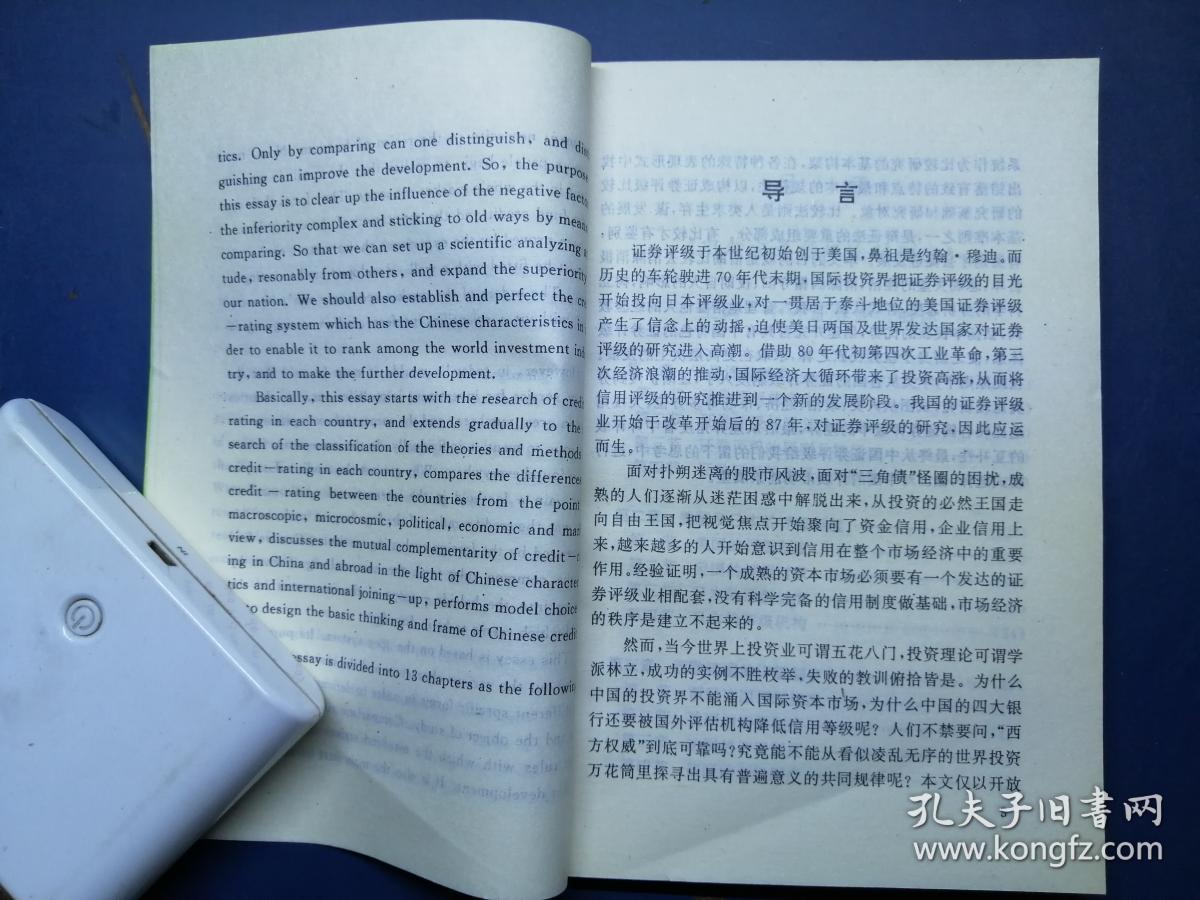 tics. Only by comparing can one distinguish, and
guishing can improve the development. So, the purpose
this essay is to clear up the influence of the negative
the inferiority complex and sticking to old ways by means
comparing. So that we can set up a scientific analyzing
tude, resonably from others, and expand the superiority
our nation. We should also establish and perfect the
—rating system which has the Chinese characteristics in
der to enable it to rank among the world investment
try, and to make the further development.
Basically, this essay starts with the research of
rating in each country, and extends gradually to the
search of the classification of the theories and methods
credit—rating in each country, compares the differences
credit — rating between the countries from the point
macroscopic, microcosmic, political, economic and
view, discusses the mutual complementarity of credit—
ing in China and abroad in the light of Chinese
tics and international joining—up, performs model choice
to design the basic thinking and frame of Chinese
essay is divided into 13 chapters as the following
导 言
证券评级于本世纪初始创于美国，鼻祖是约翰·穆迪。而
历史的车轮驶进 70 年代末期，国际投资界把证券评级的目光
开始投向日本评级业，对一贯居于泰斗地位的美国证券评级
产生了信念上的动摇，迫使美日两国及世界发达国家对证券
评级的研究进入高潮。借助 80 年代初第四次工业革命，第三
次经济浪潮的推动，国际经济大循环带来了投资高涨，从而将
信用评级的研究推进到一个新的发展阶段。我国的证券评级
业开始于改革开始后的 87 年，对证券评级的研究，因此应运
而生。
面对扑朔迷离的股市风波，面对“三角债”怪圈的困扰，成
熟的人们逐渐从迷茫困惑中解脱出来，从投资的必然王国走
向自由王国，把视觉焦点开始聚向了资金信用，企业信用上
来，越来越多的人开始意识到信用在整个市场经济中的重要
作用。经验证明，一个成熟的资本市场必须要有一个发达的证
券评级业相配套，没有科学完备的信用制度做基础，市场经济
的秩序是建立不起来的。
然而，当今世界上投资业可谓五花八门，投资理论可谓学
派林立，成功的实例不胜枚举，失败的教训俯拾皆是。为什么
中国的投资界不能涌入国际资本市场，为什么中国的四大银
行还要被国外评估机构降低信用等级呢？人们不禁要问，“西
方权威”到底可靠吗？究竟能不能从看似凌乱无序的世界投资
万花筒里探寻出具有普遍意义的共同规律呢？本文仅以开放
孔夫子旧书网
www.kongfz.com